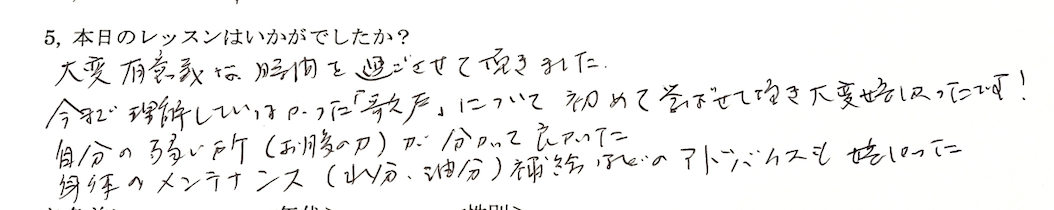 5, 本日のレッスンはいかがでしたか？
大変有意義な時間を過ごさせて頂きました.
今まで理解していなかった「歌声」について初めて学ばせて頂き大変嬉しかったです!
自分の弱い所(お腹の力)が分かって良かった
身体のメンテナンス(水分、油分)補給などのアドバイスも嬉しかった